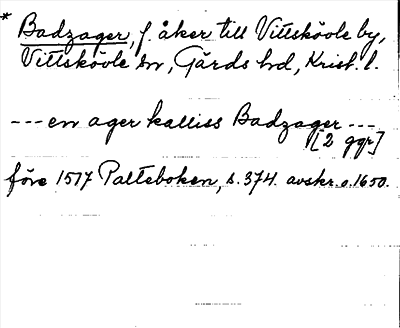 * Badzager, f. åker till Vittskövle by,
Vittskövle sn, Gärds hd, Krist. l.
--- en ager kalliss Badzager ---
[2 ggr]
före 1517 Palteboken, s. 374. avskr. o. 1650.